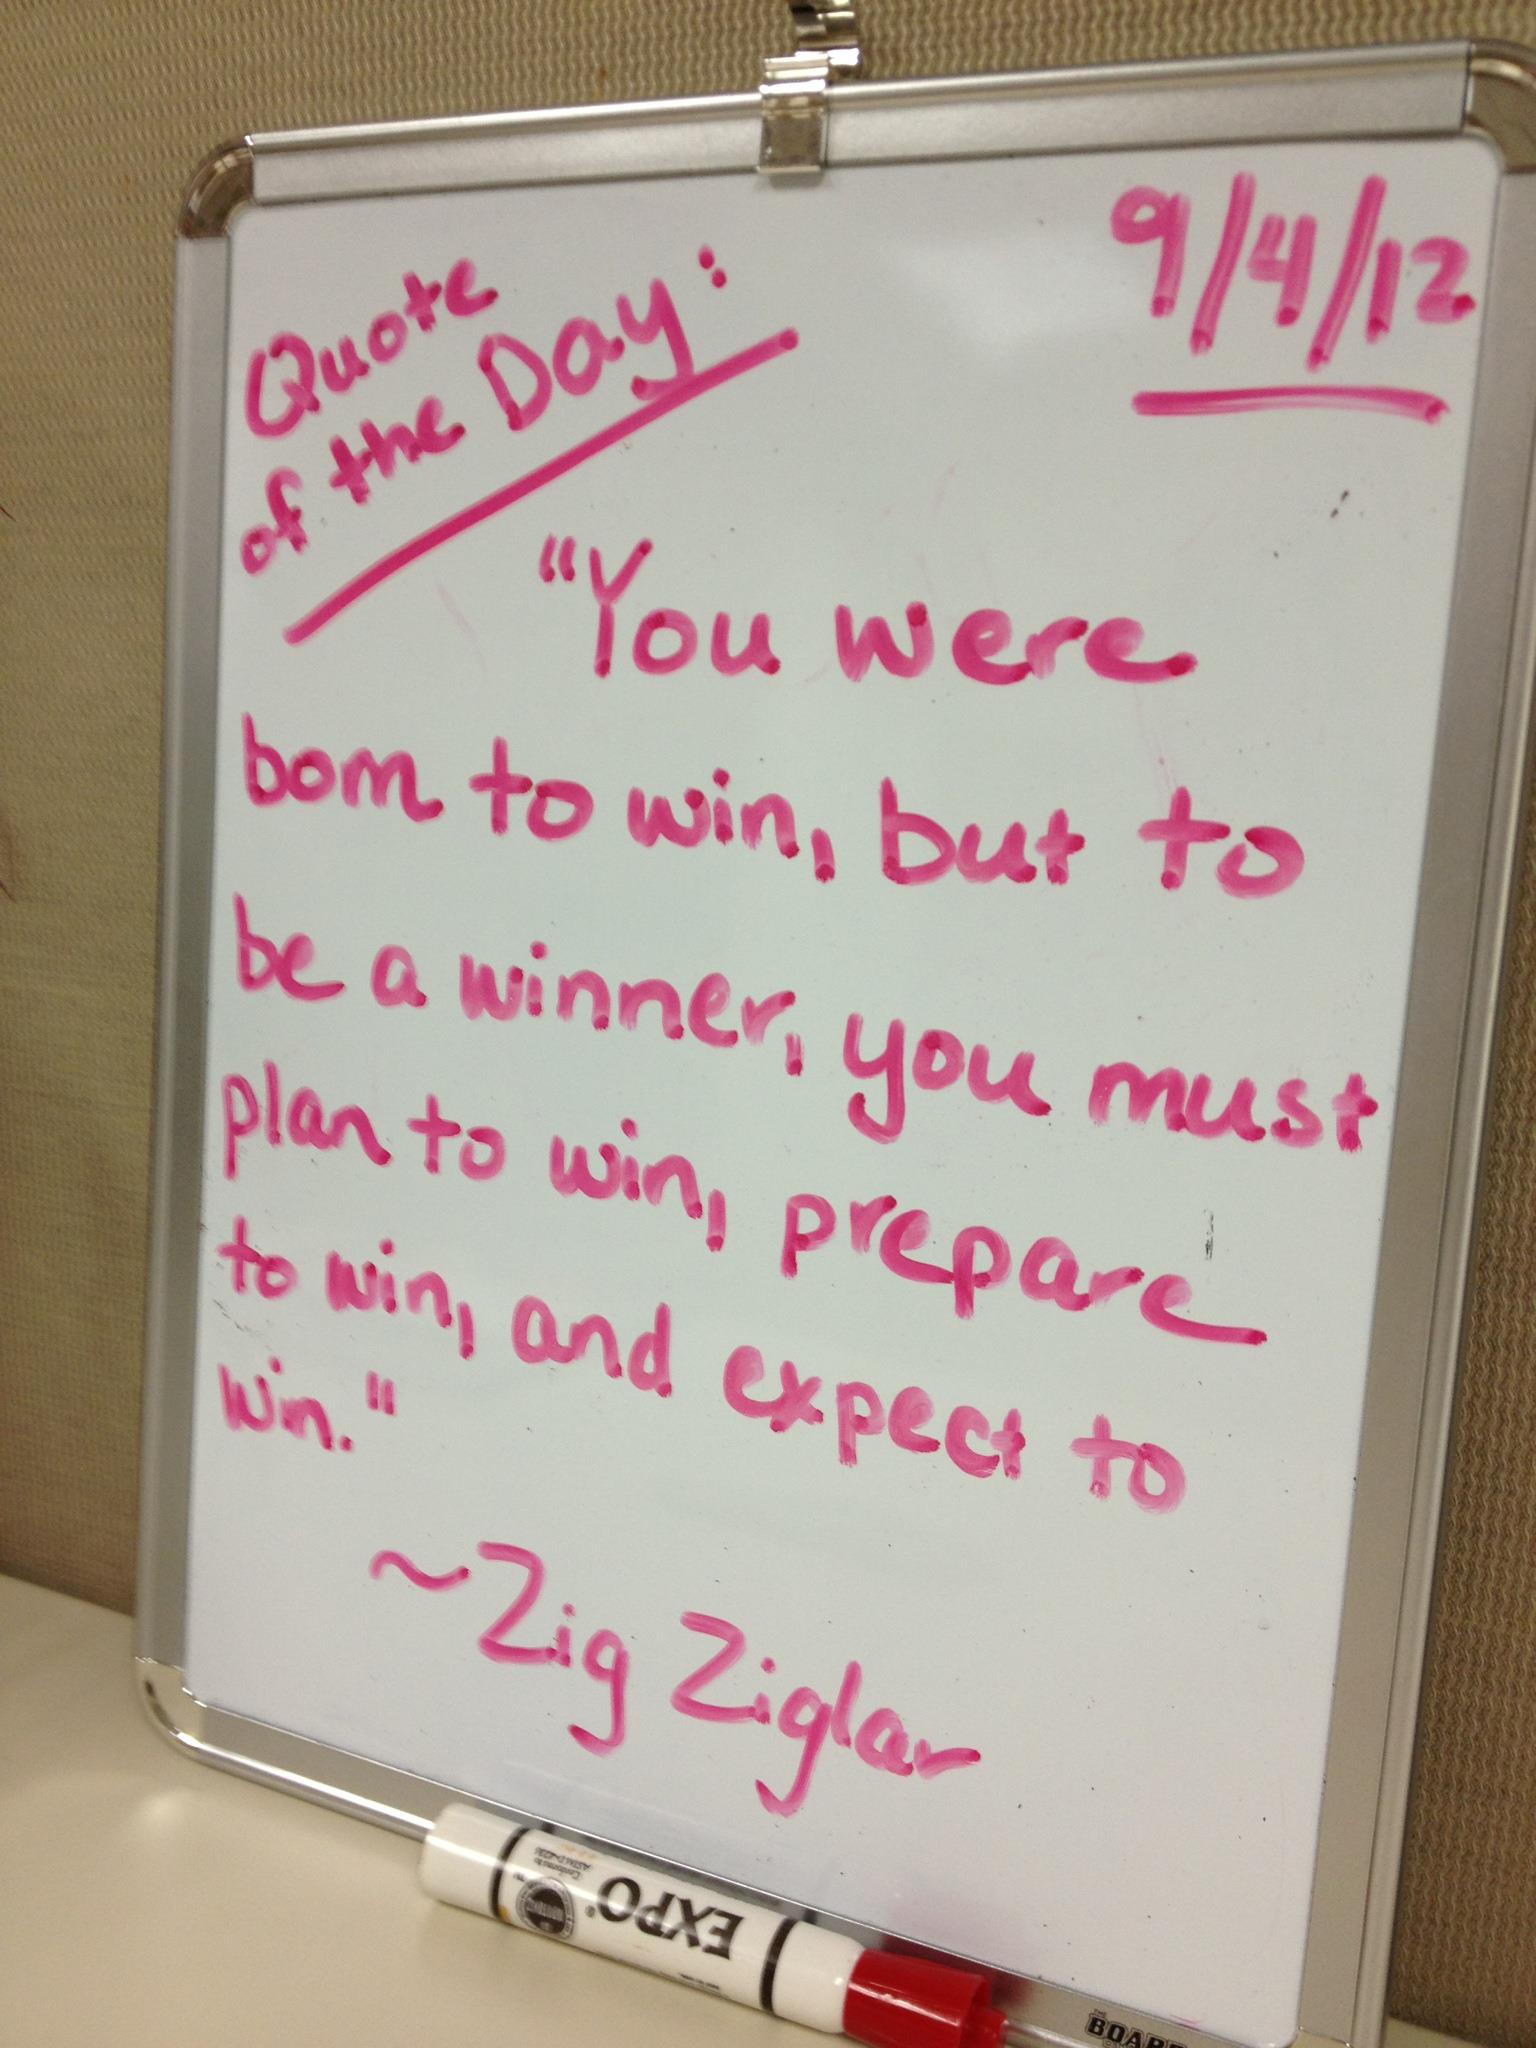 9/4/12
Quote
of the Day:
"You were
born to win, but to
be a winner, you must
plan to win, prepare
to win, and expect to
win."
~Zig Ziglar
EXPO®
Conforms to
ASTM D-4236
THE
BOARD